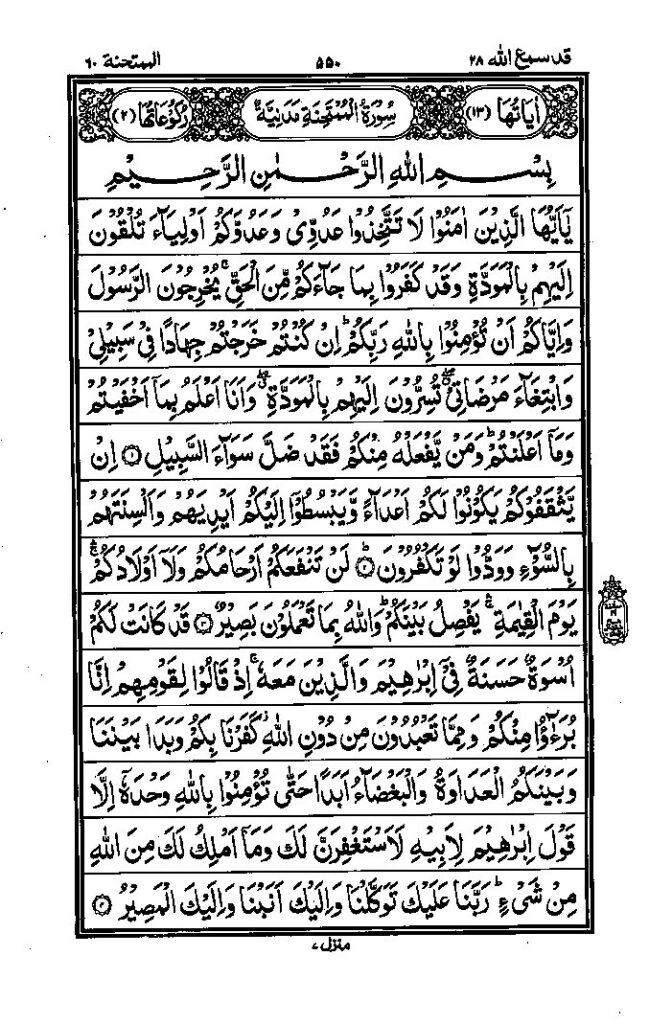 قد سمع الله ۲۸ ۵۵۰ الممتحنة ۶۰
اٰيَاتُهَا (۱۳) سُوْرَةُ الْمُمْتَحِنَةِ مَدَنِيَّةٌ رُكُوْعَاتُهَا (۲)
بِسْمِ اللهِ الرَّحْمٰنِ الرَّحِيْمِ
يٰۤاَيُّهَا الَّذِيْنَ اٰمَنُوْا لَا تَتَّخِذُوْا عَدُوِّىْ وَعَدُوَّكُمْ اَوْلِيَآءَ تُلْقُوْنَ
اِلَيْهِمْ بِالْمَوَدَّةِ وَقَدْ كَفَرُوْا بِمَا جَآءَكُمْ مِّنَ الْحَقِّ ۚ يُخْرِجُوْنَ الرَّسُوْلَ
وَاِيَّاكُمْ اَنْ تُؤْمِنُوْا بِاللهِ رَبِّكُمْ ؕ اِنْ كُنْتُمْ خَرَجْتُمْ جِهَادًا فِىْ سَبِيْلِىْ
وَابْتِغَآءَ مَرْضَاتِىْ ۖ تُسِرُّوْنَ اِلَيْهِمْ بِالْمَوَدَّةِ ۖ وَاَنَا اَعْلَمُ بِمَاۤ اَخْفَيْتُمْ
وَمَاۤ اَعْلَنْتُمْ ؕ وَمَنْ يَّفْعَلْهُ مِنْكُمْ فَقَدْ ضَلَّ سَوَآءَ السَّبِيْلِ ۱ اِنْ
يَّثْقَفُوْكُمْ يَكُوْنُوْا لَكُمْ اَعْدَآءً وَّيَبْسُطُوْۤا اِلَيْكُمْ اَيْدِيَهُمْ وَاَلْسِنَتَهُمْ
بِالسُّوْٓءِ وَوَدُّوْا لَوْ تَكْفُرُوْنَ ؕ ۲ لَنْ تَنْفَعَكُمْ اَرْحَامُكُمْ وَلَاۤ اَوْلَادُكُمْ ۛۚ
يَوْمَ الْقِيٰمَةِ ۛۚ يَفْصِلُ بَيْنَكُمْ ؕ وَاللهُ بِمَا تَعْمَلُوْنَ بَصِيْرٌ ۳ قَدْ كَانَتْ لَكُمْ
اُسْوَةٌ حَسَنَةٌ فِىْۤ اِبْرٰهِيْمَ وَالَّذِيْنَ مَعَهٗ ۚ اِذْ قَالُوْا لِقَوْمِهِمْ اِنَّا
بُرَءٰٓؤُا مِنْكُمْ وَمِمَّا تَعْبُدُوْنَ مِنْ دُوْنِ اللهِ ۫ كَفَرْنَا بِكُمْ وَبَدَا بَيْنَنَا
وَبَيْنَكُمُ الْعَدَاوَةُ وَالْبَغْضَآءُ اَبَدًا حَتّٰى تُؤْمِنُوْا بِاللهِ وَحْدَهٗۤ اِلَّا
قَوْلَ اِبْرٰهِيْمَ لِاَبِيْهِ لَاَسْتَغْفِرَنَّ لَكَ وَمَاۤ اَمْلِكُ لَكَ مِنَ اللهِ
مِنْ شَىْءٍ ؕ رَبَّنَا عَلَيْكَ تَوَكَّلْنَا وَاِلَيْكَ اَنَبْنَا وَاِلَيْكَ الْمَصِيْرُ ۴
منزل ۷